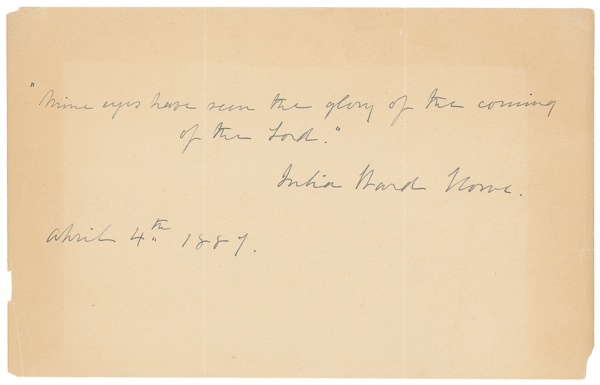 "Mine eyes have seen the glory of the coming
of the Lord."
Julia Ward Howe.
April 4th 1887.